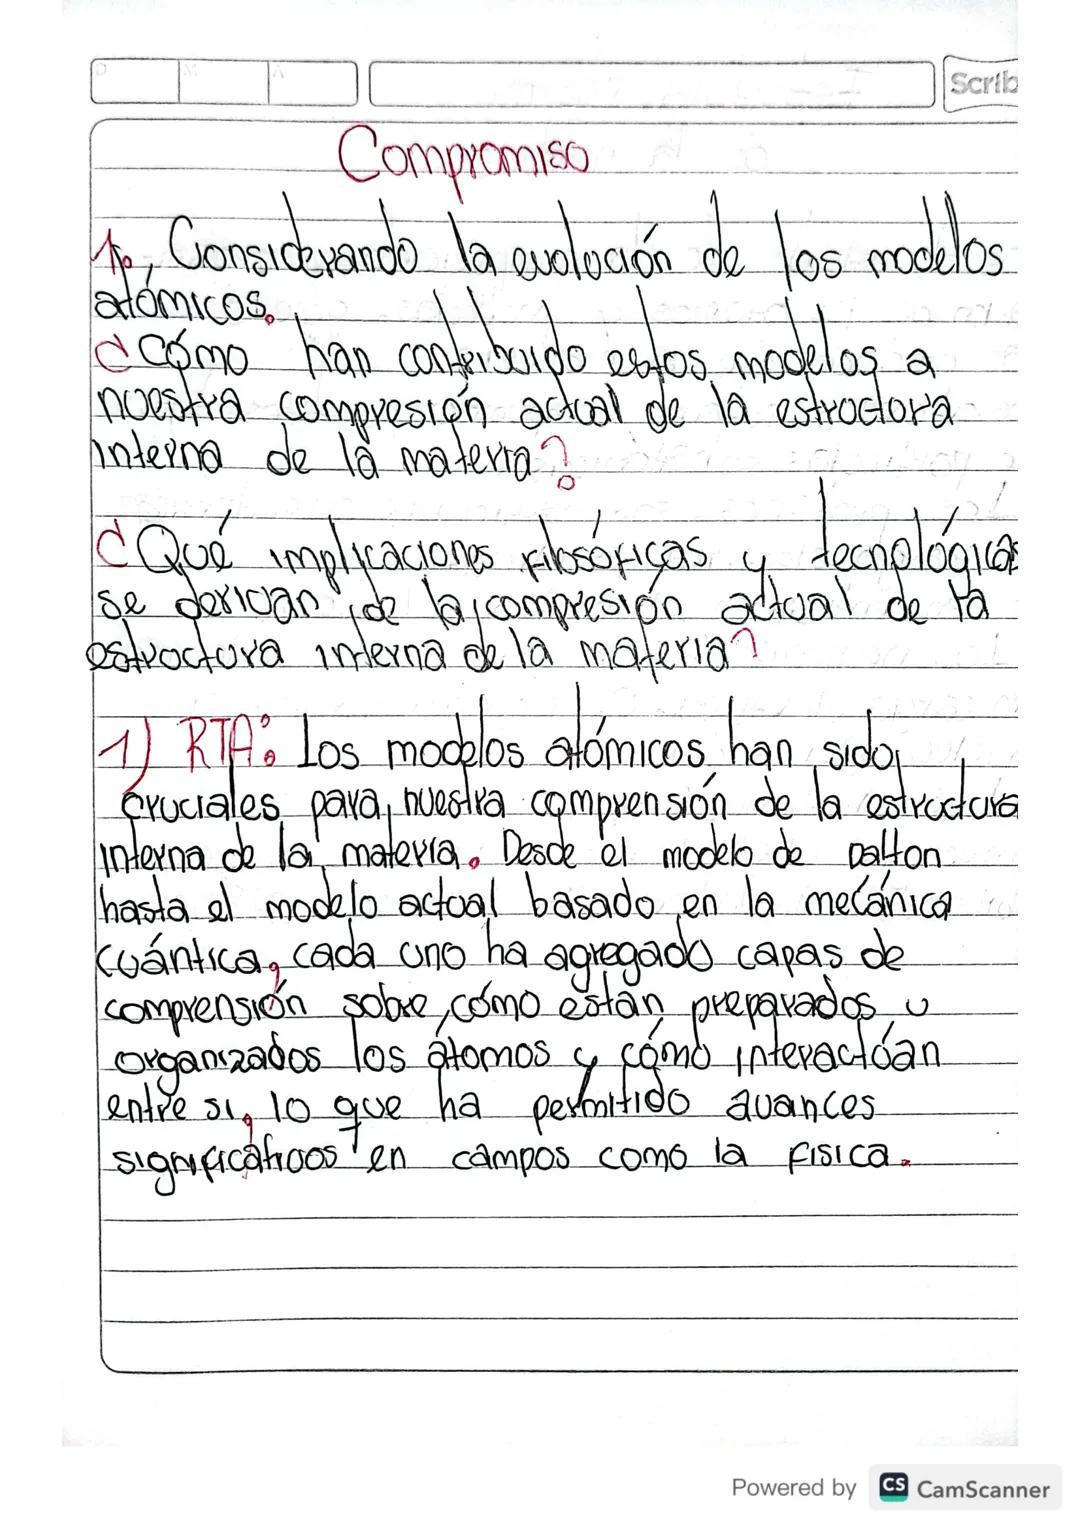 D M A
Scrib
Compromiso
1., Considerando la evolución de los modelos
atómicos.
¿Cómo han contribuido estos modelos a
nuestra compresión actual de la estructura
interna de la materia?
¿Qué implicaciones filosóficas y tecnológicas
se derivan de la compresión actual de la
estructura interna de la materia?
1) RTA: Los modelos atómicos han sido
cruciales para nuestra comprensión de la estructura
interna de la materia. Desde el modelo de Dalton
hasta el modelo actual basado en la mecánica
cuántica, cada uno ha agregado capas de
comprensión sobre cómo están preparados u
organizados los átomos y cómo interactúan
entre si, lo que ha permitido avances
significativos en campos como la fisica.
Powered by CS CamScanner